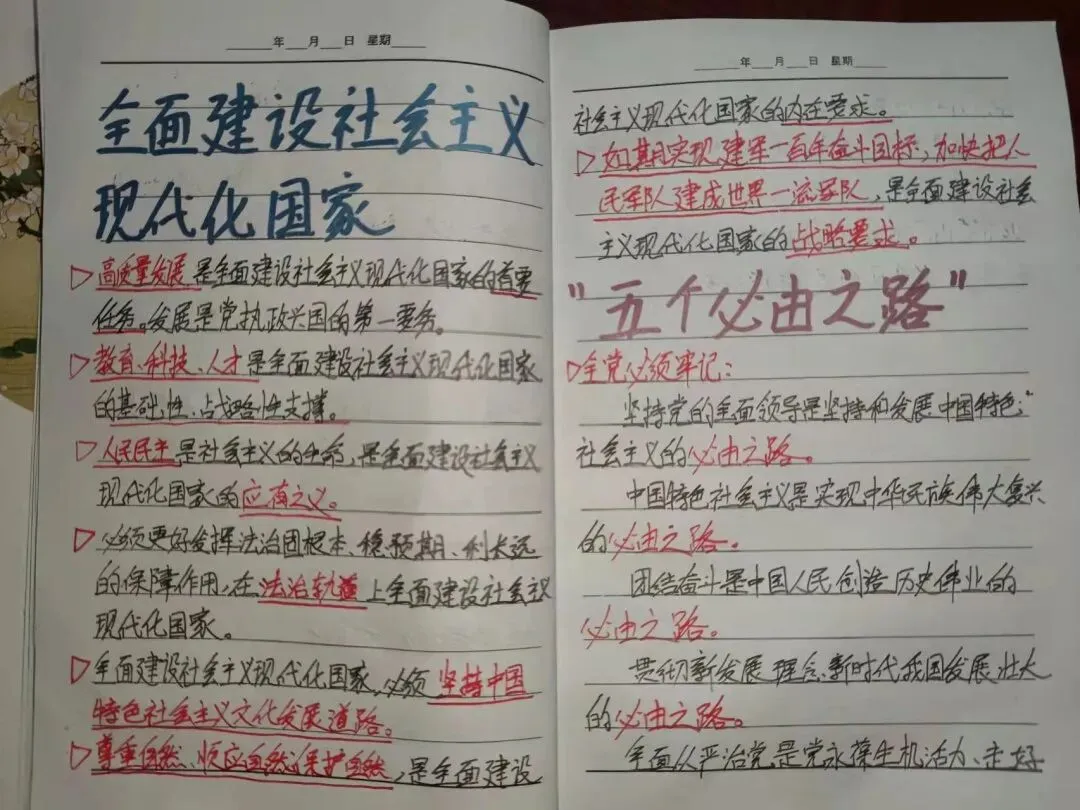 年 月 日 星期
全面建设社会主义
现代化国家
高质量发展是全面建设社会主义现代化国家的首要
任务。发展是党执政兴国的第一要务。
教育、科技、人才是全面建设社会主义现代化国家
的基础性、战略性支撑。
人民民主是社会主义的生命,是全面建设社会主义
现代化国家的应有之义。
必须更好发挥法治固根本、稳预期、利长远
的保障作用,在法治轨道上全面建设社会主义
现代化国家。
全面建设社会主义现代化国家,必须坚持中国
特色社会主义文化发展道路。
尊重自然、顺应自然、保护自然,是全面建设
年 月 日 星期
社会主义现代化国家的内在要求。
如期实现建军一百年奋斗目标,加快把人
民军队建成世界一流军队,是全面建设社会
主义现代化国家的战略要求。
"五个必由之路"
全党必须牢记:
坚持党的全面领导是坚持和发展中国特色
社会主义的必由之路。
中国特色社会主义是实现中华民族伟大复兴
的必由之路。
团结奋斗是中国人民创造历史伟业的
必由之路。
贯彻新发展理念是新时代我国发展壮大
的必由之路。
全面从严治党是党永葆生机活力、走好